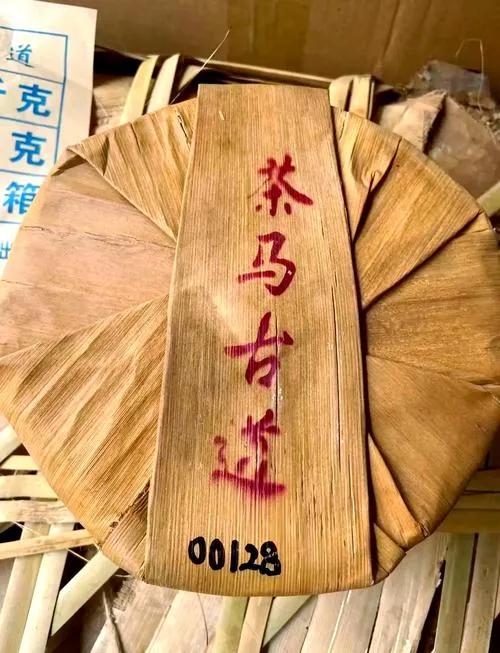 道
克
克
箱
茶马古道
00128